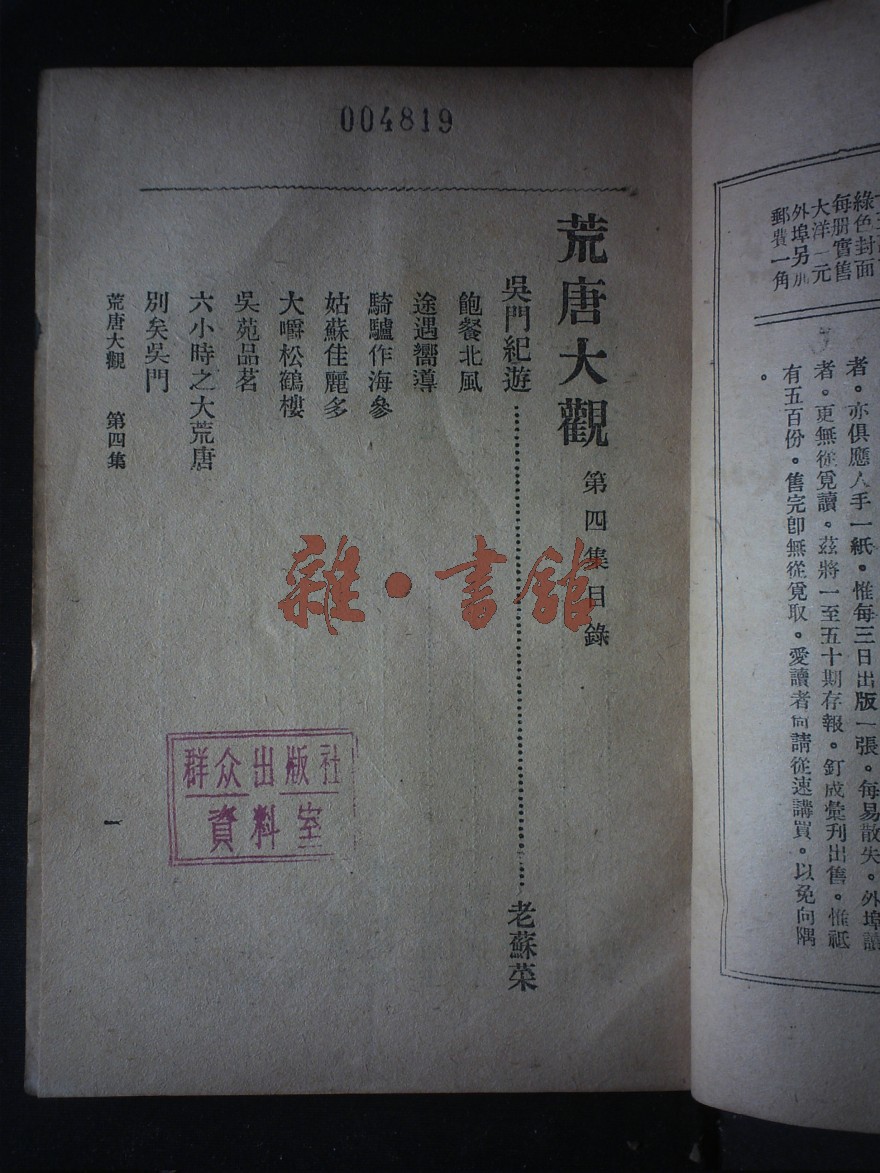 綠色封面
每册實售
大洋一元
外埠另加
郵費一角
者。亦俱應人手一紙。惟每三日出版一張。每易散失。外埠讀
者。更無從覓讀。茲將一至五十期存報。釘成彙刊出售。惟祗
有五百份。售完卽無從覓取。愛讀者向請從速購買。以免向隅
。
004819
荒唐大觀 第四集目錄
吳門紀遊 老蘇菜
飽餐北風
途遇嚮導
騎驢作海參
姑蘇佳麗多
大嚼松鶴樓
吳苑品茗
六小時之大荒唐
別矣吳門
荒唐大觀 第四集 一
雜·書館
群众出版社
資料室